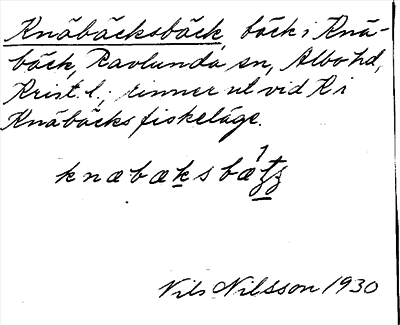 Knäbäcksbäck, bäck i Knä-
bäck, Ravlunda sn, Albo hd,
Krist. l.; rinner ut vid R i
Knäbäcks fiskeläge.
knæbæksbæ
Nils Nilsson 1930